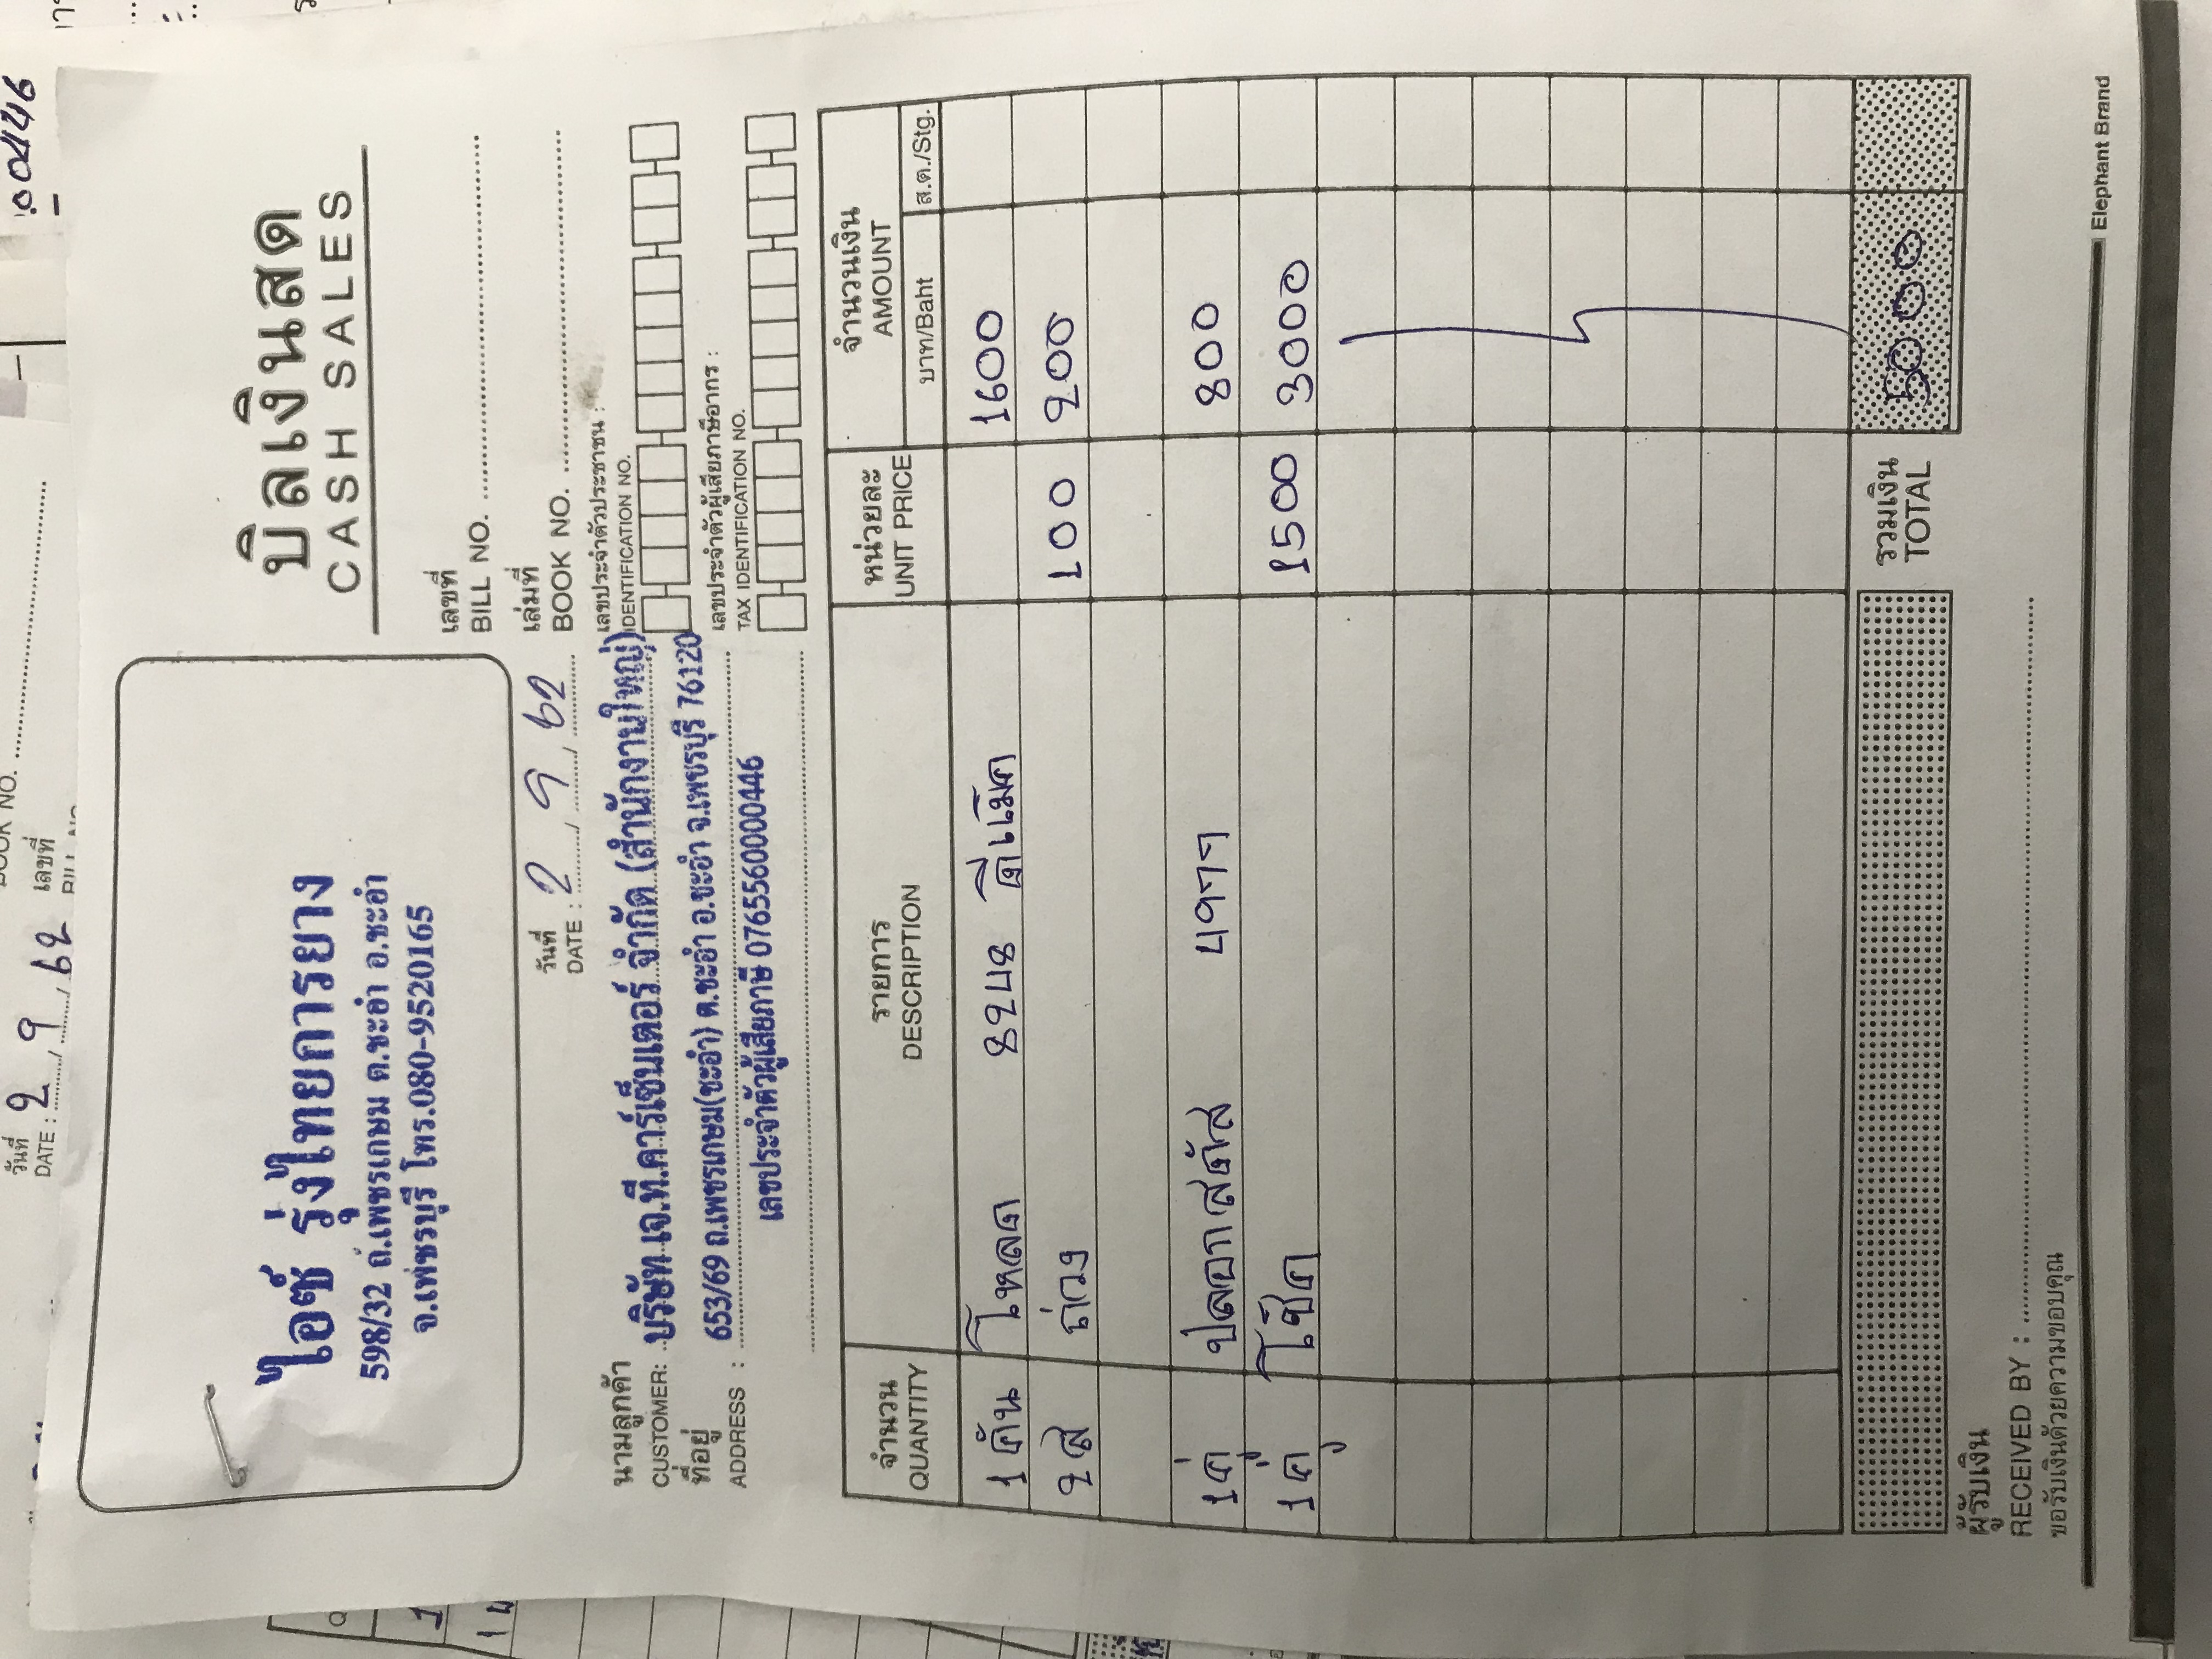 บิลเงินสด
CASH SALES
ไอซ์ รุ่งไทยการยาง
598/32 ถ.เพชรเกษม ต.ชะอำ อ.ชะอำ
จ.เพชรบุรี โทร.080-9520165
เลขที่
BILL NO.
วันที่
DATE : 2 / 9 / 62
เล่มที่
BOOK NO.
นามลูกค้า
CUSTOMER: บริษัท เจ.ที.คาร์เซ็นเตอร์ จำกัด (สำนักงานใหญ่)
เลขประจำตัวประชาชน :
IDENTIFICATION NO.
ที่อยู่
ADDRESS : 653/69 ถ.เพชรเกษม(ชะอำ) ต.ชะอำ อ.ชะอำ จ.เพชรบุรี 76120
เลขประจำตัวผู้เสียภาษี 0765560000446
เลขประจำตัวผู้เสียภาษีอากร :
TAX IDENTIFICATION NO.
จำนวน รายการ หน่วยละ จำนวนเงิน
QUANTITY DESCRIPTION UNIT PRICE AMOUNT
บาท/Baht ส.ต./Stg.
1 คัน โหลด ดีแม็ค 1600
2 ล ถ่วง 100 200
1 คู่ ปลอกสลัส 800
1 คู่ โช๊ค 1500 3000
รวมเงิน
TOTAL
ผู้รับเงิน
RECEIVED BY :
ขอรับเงินด้วยความขอบคุณ
Elephant Brand
วันที่
DATE : 2 / 9 / 62
เลขที่
BOOK NO.